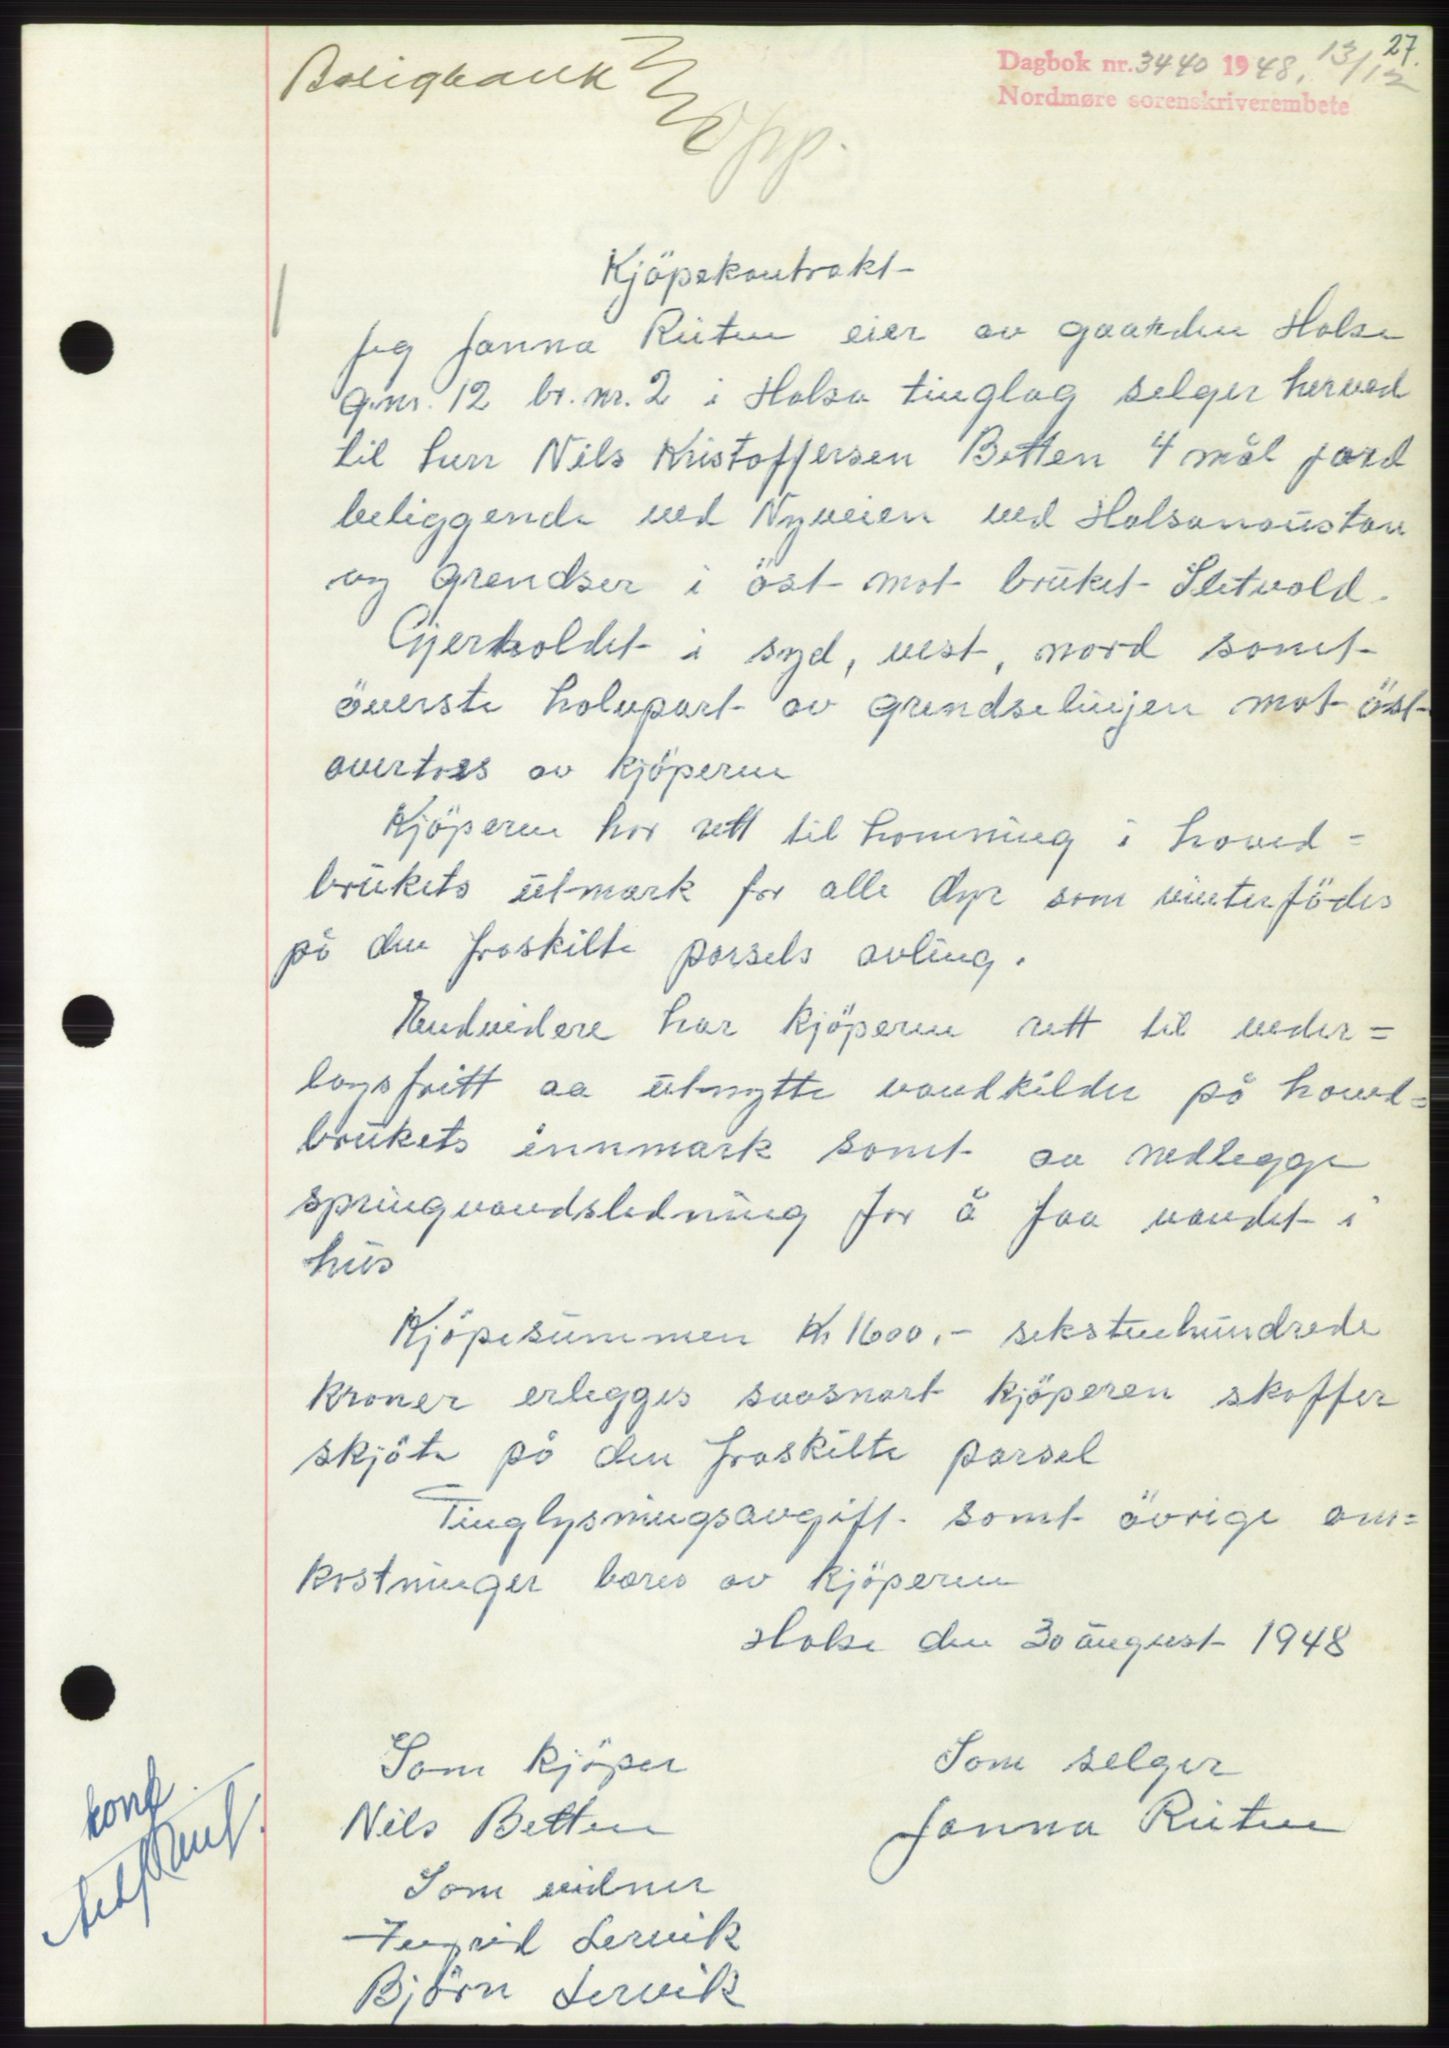 27.
Boligbank
Dagbok nr. 3440 1948. 13/12
Nordmøre sorenskriverembete
opp.
Kjöpekontrakt
Jeg Janna Rüten eier av gaarden Halsa
g.nr. 12 br. nr. 2 i Halsa tinglag selger herved
til herr Nils Kristoffersen Betten 4 mål jord
beliggende ved Nyveien ved Halsanaustan
og grendser i öst mot bruket Sletvold.
Gjerholdet i syd, vest, nord samt
överste halvpart av grendselinjen mot öst
overtas av kjöperen
Kjöperen har rett til hamning i hoved=
brukets utmark for alle dyr som vinterfödes
på den fraskilte parsels avling.
Endvidere har kjöperen rett til veder=
lagsfritt aa utnytte vandkilder på hoved=
brukets innmark samt aa nedlegge
springvandsledning for å faa vandet i
hus
Kjöpesummen Kr 1600.- sekstenhundrede
kroner erlegges saasnart kjöperen skaffer
skjöte på den fraskilte parsel
Tinglysningsavgift samt övrige om=
kostninger bæres av kjöperen
Halsa den 30 august 1948
Som kjöper Som selger
Nils Betten Janna Rüten
Som vidner
Ingrid Lervik
Björn Lervik
konf.